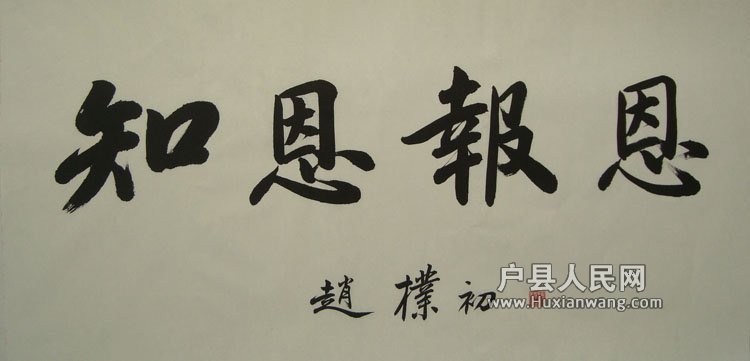 知恩報恩
趙樸初
户县人民网
www.Huxianwang.com